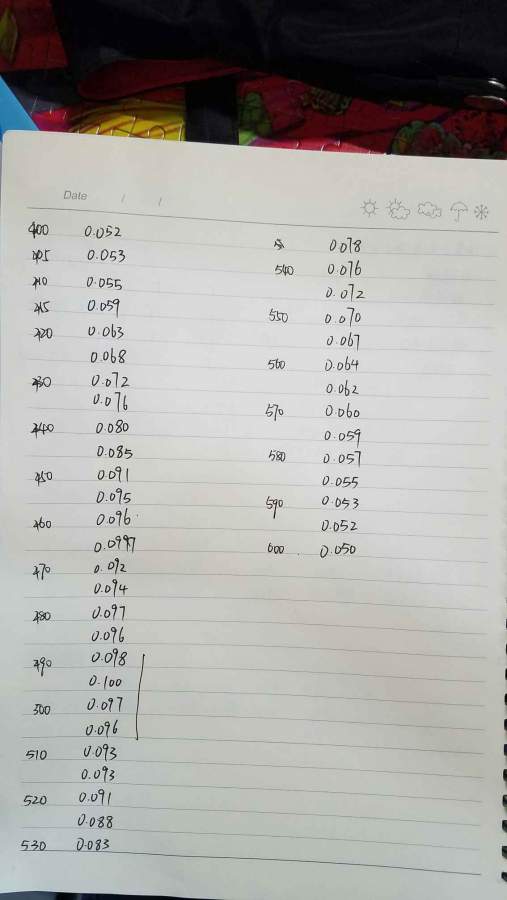 Date / /
400 0.052
405 0.053
410 0.055
415 0.059
420 0.063
0.068
430 0.072
0.076
440 0.080
0.085
450 0.091
0.095
460 0.096
470 0.092
0.094
480 0.097
0.096
490 0.098
0.100
500 0.097
0.096
510 0.093
0.093
520 0.091
0.088
530 0.083
0.078
540 0.076
0.072
550 0.070
0.067
560 0.064
0.062
570 0.060
0.059
580 0.057
0.055
590 0.053
0.052
600 0.050